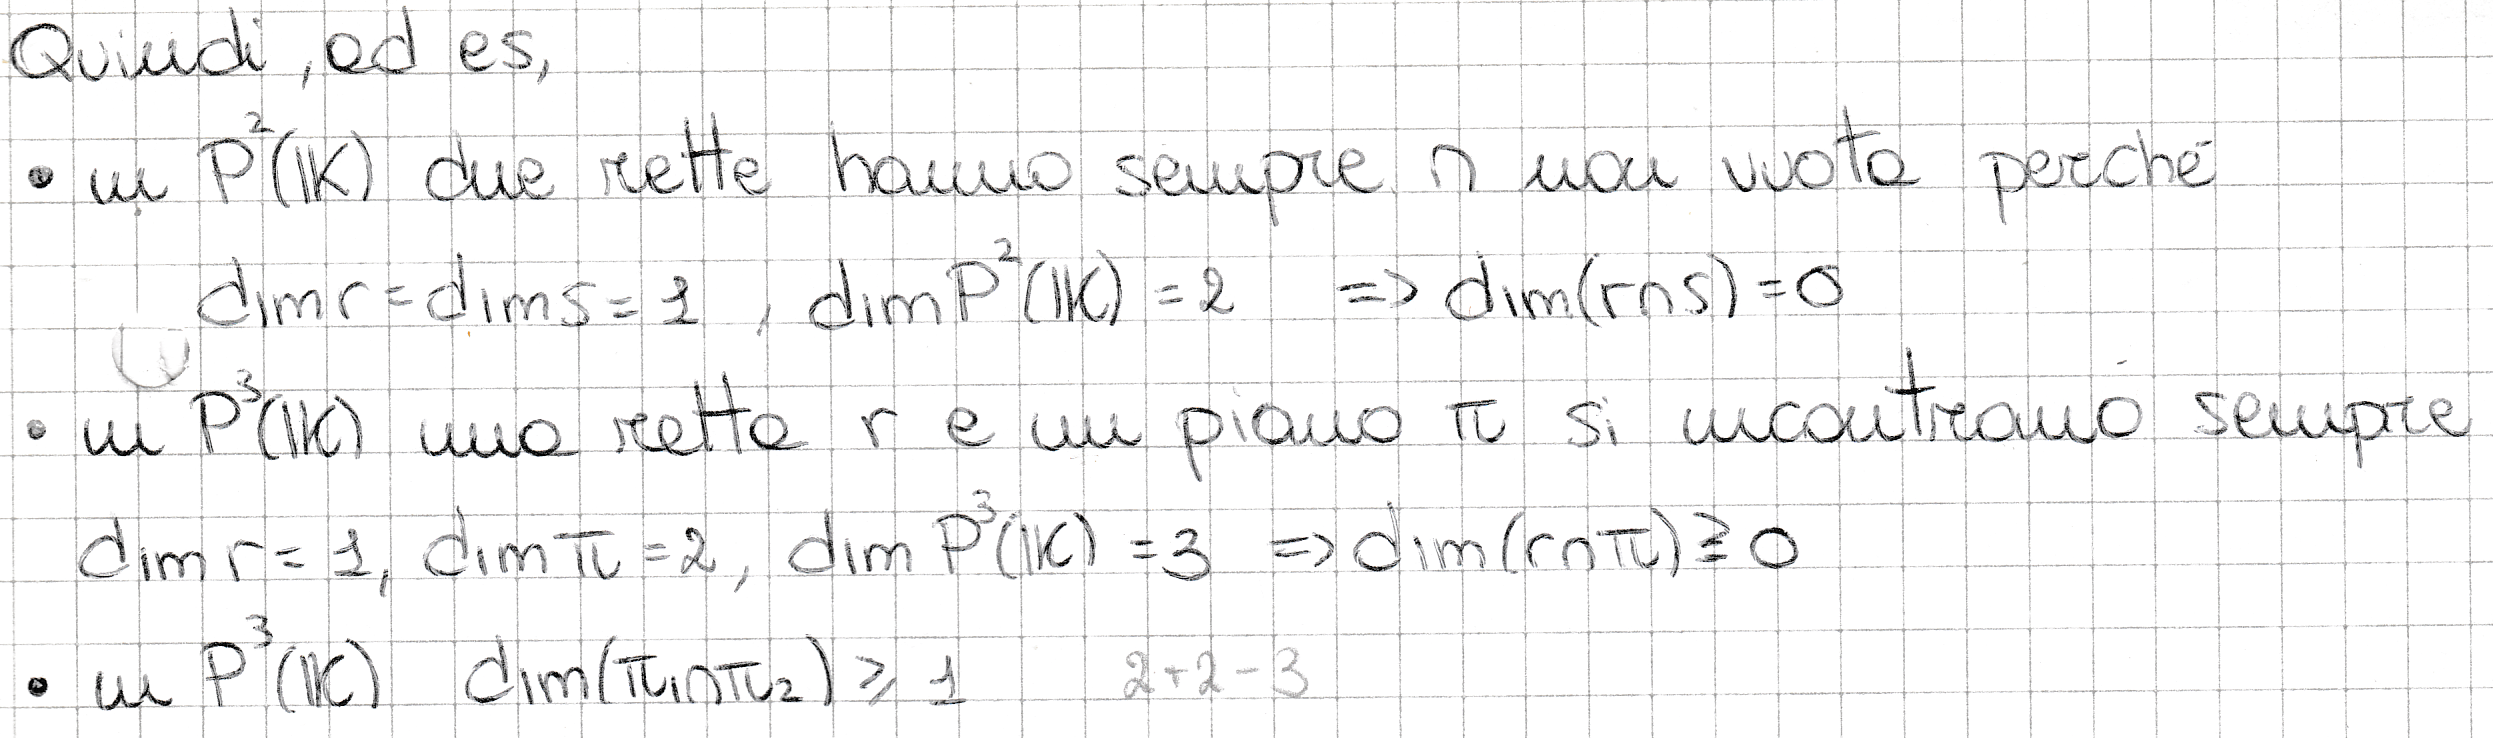 Quindi, ad es,
• in P²(𝕂) due rette hanno sempre ∩ non vuota perché
dim r = dim s = 1, dim P²(𝕂) = 2 => dim(r∩s) = 0
• in P³(𝕂) una retta r e un piano π si incontrano sempre
dim r = 1, dim π = 2, dim P³(𝕂) = 3 => dim(r∩π) ≥ 0
• in P³(𝕂) dim(π₁∩π₂) ≥ 1 2+2-3